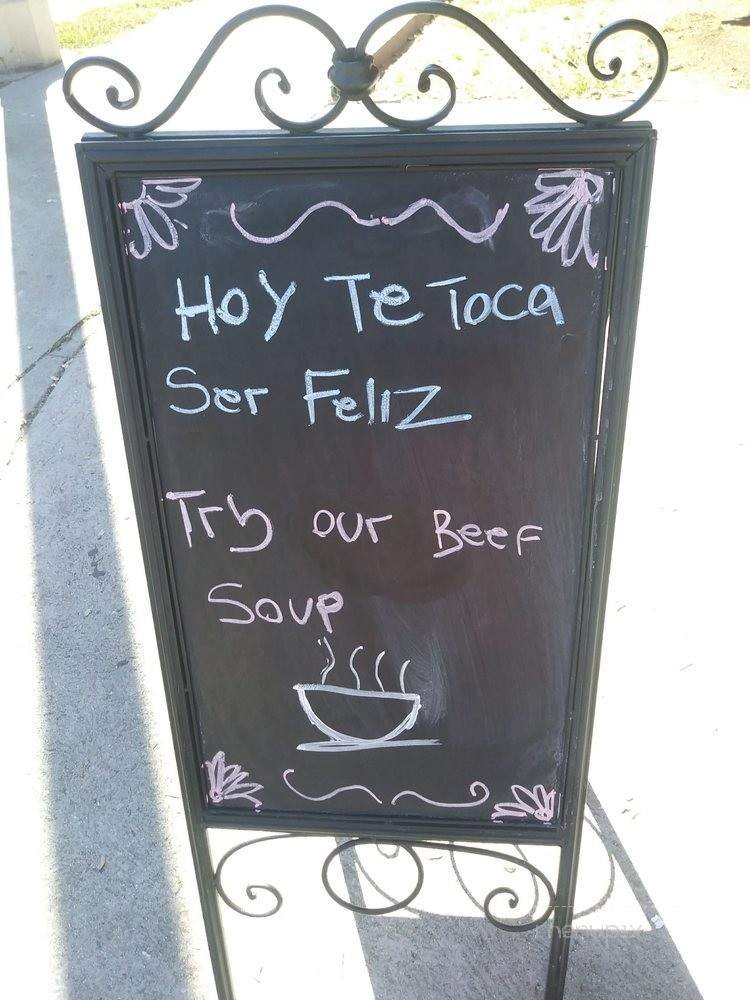 HOY Te Toca
Ser FelIZ
Try our Beef
Soup
menupix